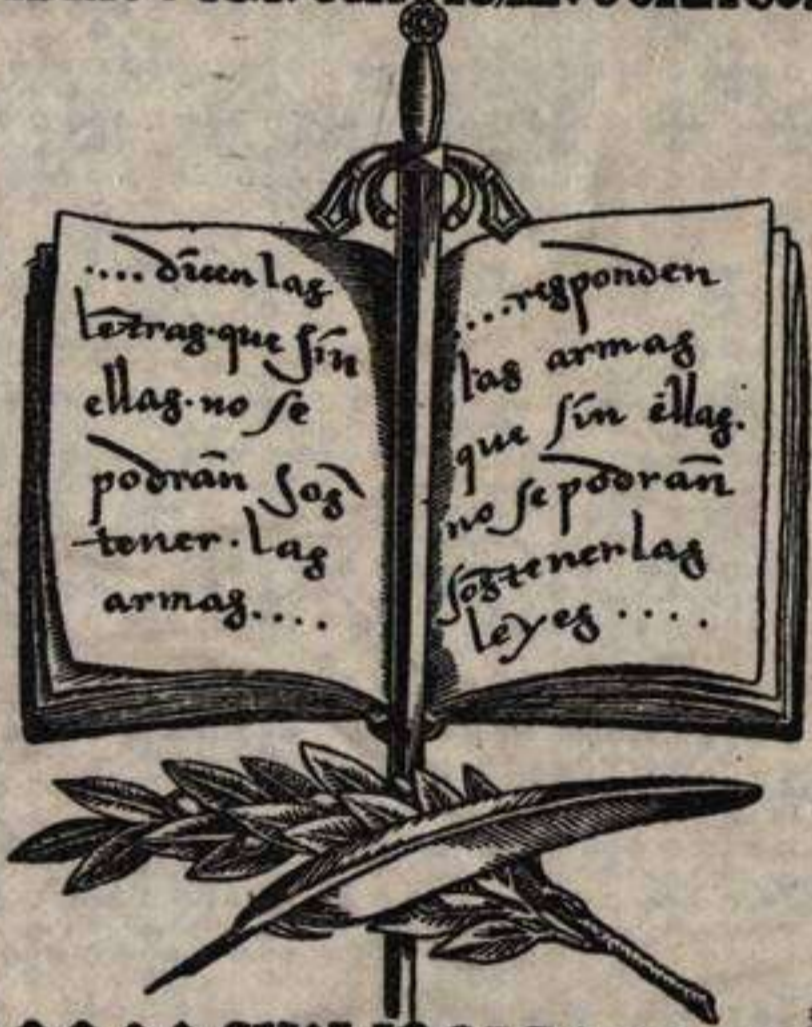 .... dicen las
letras que sin
ellas no se
podrán sos
tener las
armas....
....responden
las armas
que sin ellas.
no se podrán
sostener las
leyes ....